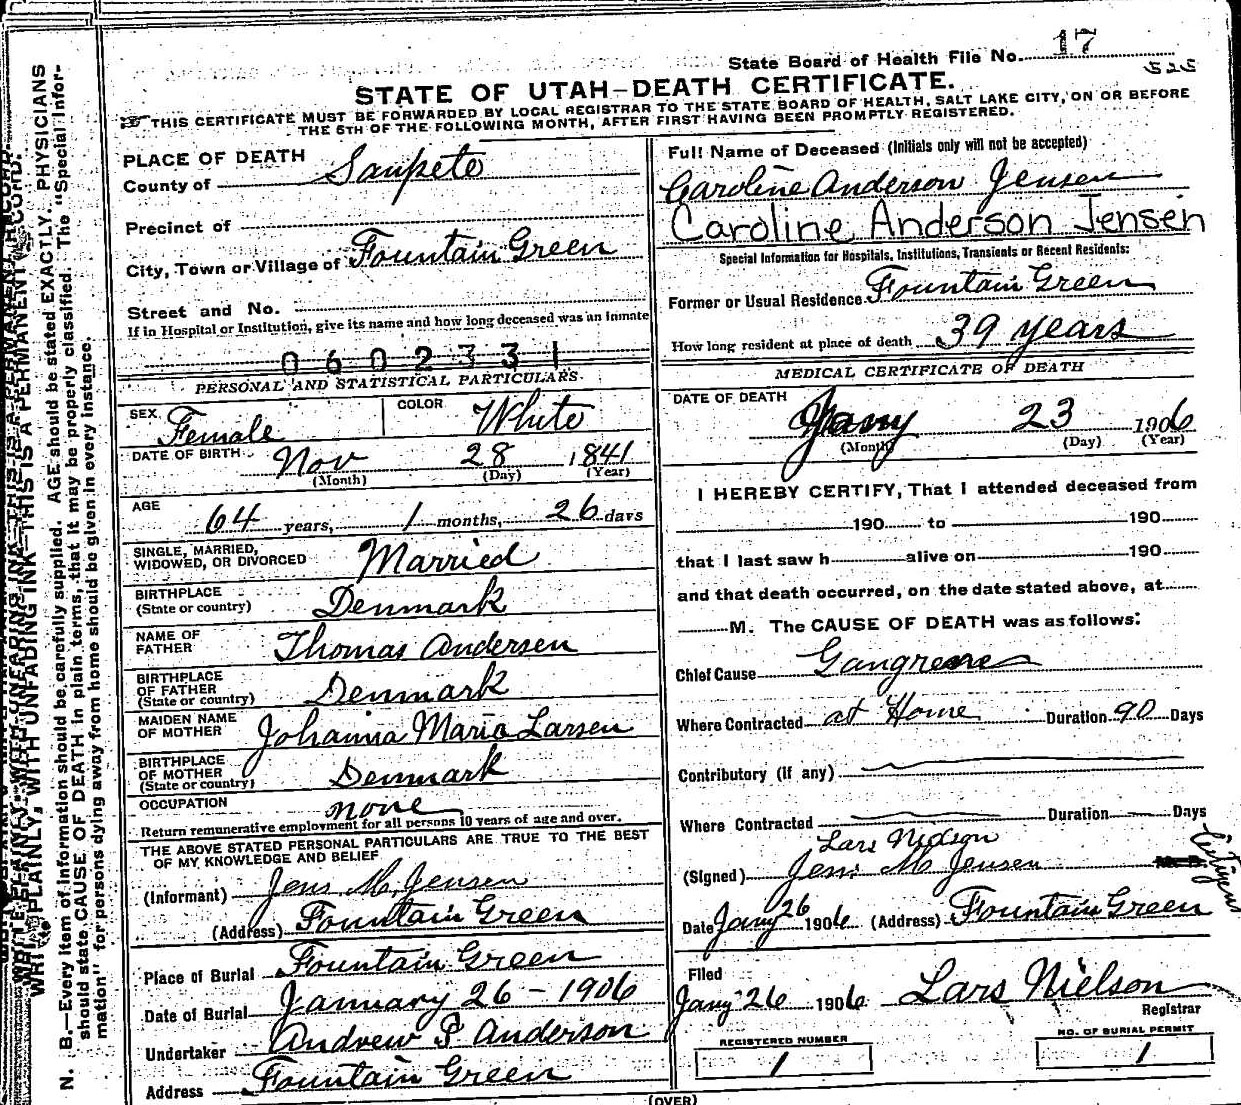 State Board of Health File No. 17
525
STATE OF UTAH—DEATH CERTIFICATE.
THIS CERTIFICATE MUST BE FORWARDED BY LOCAL REGISTRAR TO THE STATE BOARD OF HEALTH, SALT LAKE CITY, ON OR BEFORE
THE 5TH OF THE FOLLOWING MONTH, AFTER FIRST HAVING BEEN PROMPTLY REGISTERED.
PLACE OF DEATH
County of Sanpete
Precinct of
City, Town or Village of Fountain Green
Street and No.
If in Hospital or Institution, give its name and how long deceased was an inmate
0602331
PERSONAL AND STATISTICAL PARTICULARS.
SEX Female COLOR White
DATE OF BIRTH Nov 28 1841
(Month) (Day) (Year)
AGE 64 years, 1 months, 26 days
SINGLE, MARRIED,
WIDOWED, OR DIVORCED Married
BIRTHPLACE
(State or country) Denmark
NAME OF
FATHER Thomas Andersen
BIRTHPLACE
OF FATHER
(State or country) Denmark
MAIDEN NAME
OF MOTHER Johanna Maria Larsen
BIRTHPLACE
OF MOTHER
(State or country) Denmark
OCCUPATION none
Return remunerative employment for all persons 10 years of age and over.
THE ABOVE STATED PERSONAL PARTICULARS ARE TRUE TO THE BEST
OF MY KNOWLEDGE AND BELIEF
(Informant) Jens M. Jensen
(Address) Fountain Green
Place of Burial Fountain Green
Date of Burial January 26 - 1906
Undertaker Andrew P Anderson
Address Fountain Green
Full Name of Deceased (Initials only will not be accepted)
Caroline Anderson Jensen
Caroline Anderson Jensen
Special Information for Hospitals, Institutions, Transients or Recent Residents:
Former or Usual Residence Fountain Green
How long resident at place of death 39 years
MEDICAL CERTIFICATE OF DEATH
DATE OF DEATH
Jany 23 1906
(Month) (Day) (Year)
I HEREBY CERTIFY, That I attended deceased from
190 to 190
that I last saw h alive on 190
and that death occurred, on the date stated above, at
M. The CAUSE OF DEATH was as follows:
Chief Cause Gangrene
Where Contracted at Home Duration 90 Days
Contributory (if any)
Where Contracted Duration Days
Lars Nielson
(Signed) Jens M Jensen
Date Jany 26 1906 (Address) Fountain Green
Filed
Jany 26 1906 Lars Nielson
Registrar
REGISTERED NUMBER
1
NO. OF BURIAL PERMIT
1
(OVER)
WRITE PLAINLY, WITH UNFADING INK—THIS IS A PERMANENT RECORD.
N. B.—Every item of information should be carefully supplied. AGE should be stated EXACTLY. PHYSICIANS
should state CAUSE OF DEATH in plain terms, that it may be properly classified. The "Special Infor-
mation" for persons dying away from home should be given in every instance.